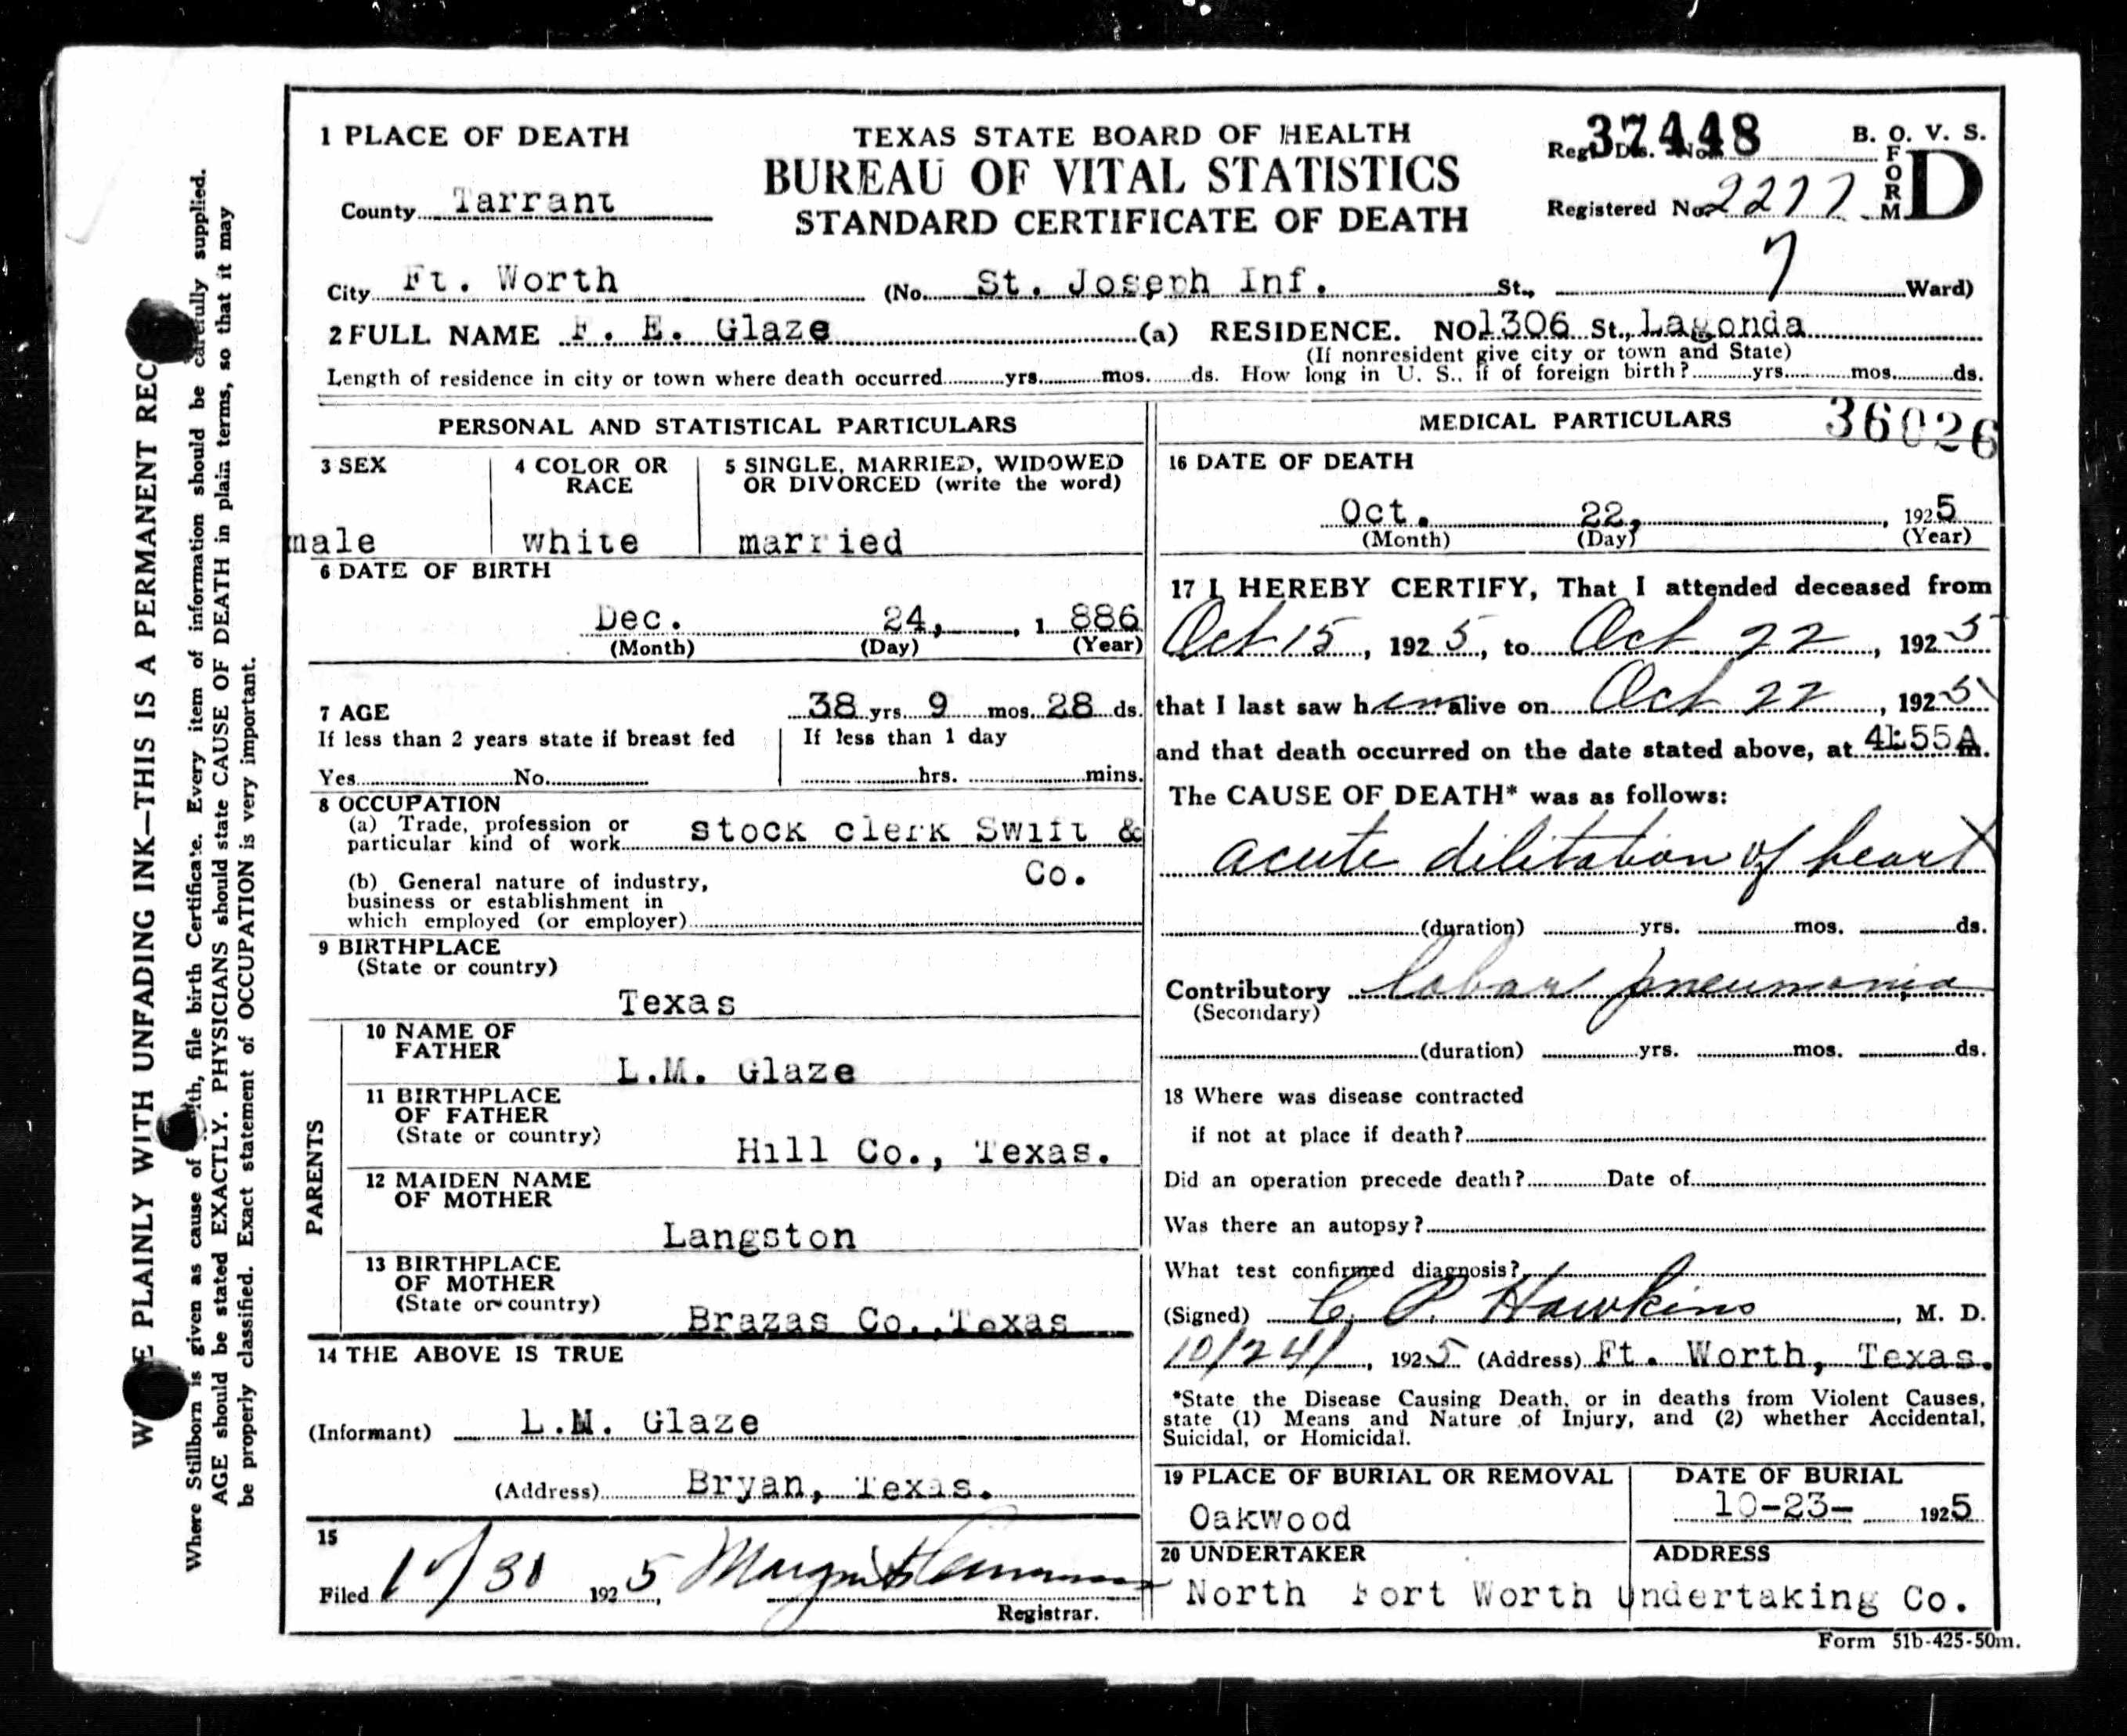 1 PLACE OF DEATH
TEXAS STATE BOARD OF HEALTH
BUREAU OF VITAL STATISTICS
STANDARD CERTIFICATE OF DEATH
Reg. Dis. No. 37448
B. O. V. S.
FORM D
County Tarrant
Registered No. 2277
City Ft. Worth (No. St. Joseph Inf. St., 7 Ward)
2 FULL NAME F. E. Glaze (a) RESIDENCE. NO 1306 St., Lagonda
(If nonresident give city or town and State)
Length of residence in city or town where death occurred yrs. mos. ds. How long in U. S., if of foreign birth? yrs. mos. ds.
PERSONAL AND STATISTICAL PARTICULARS
3 SEX
male
4 COLOR OR RACE
white
5 SINGLE, MARRIED, WIDOWED
OR DIVORCED (write the word)
married
6 DATE OF BIRTH
Dec. 24, , 1 886
(Month) (Day) (Year)
7 AGE 38 yrs. 9 mos. 28 ds.
If less than 2 years state if breast fed
Yes No
If less than 1 day
hrs. mins.
8 OCCUPATION
(a) Trade, profession or
particular kind of work stock clerk Swift &
Co.
(b) General nature of industry,
business or establishment in
which employed (or employer)
9 BIRTHPLACE
(State or country)
Texas
PARENTS
10 NAME OF
FATHER
L.M. Glaze
11 BIRTHPLACE
OF FATHER
(State or country)
Hill Co., Texas.
12 MAIDEN NAME
OF MOTHER
Langston
13 BIRTHPLACE
OF MOTHER
(State or country)
Brazas Co.,Texas
14 THE ABOVE IS TRUE
(Informant) L.M. Glaze
(Address) Bryan, Texas.
15
Filed 192 5,
Registrar.
MEDICAL PARTICULARS
36026
16 DATE OF DEATH
Oct. 22, , 1925
(Month) (Day) (Year)
17 I HEREBY CERTIFY, That I attended deceased from
Oct 15, 192 5, to Oct 22, 192 5
that I last saw him alive on Oct 22, 192 5
and that death occurred on the date stated above, at 4:55A m.
The CAUSE OF DEATH* was as follows:
acute dilitation of heart
(duration) yrs. mos. ds.
Contributory lobar pneumonia
(Secondary)
(duration) yrs. mos. ds.
18 Where was disease contracted
if not at place if death?
Did an operation precede death? Date of
Was there an autopsy?
What test confirmed diagnosis?
(Signed) C. P. Hawkins, M. D.
10/24/, 192 5 (Address) Ft. Worth, Texas.
*State the Disease Causing Death, or in deaths from Violent Causes,
state (1) Means and Nature of Injury, and (2) whether Accidental,
Suicidal, or Homicidal.
19 PLACE OF BURIAL OR REMOVAL
Oakwood
DATE OF BURIAL
10-23- 1925
20 UNDERTAKER
ADDRESS
North Fort Worth Undertaking Co.
Form 51b-425-50m.
PLAINLY WITH UNFADING INK—THIS IS A PERMANENT REC
Where Stillborn is given as cause of death, file birth Certificate. Every item of information should be carefully supplied.
AGE should be stated EXACTLY. PHYSICIANS should state CAUSE OF DEATH in plain terms, so that it may
be properly classified. Exact statement of OCCUPATION is very important.